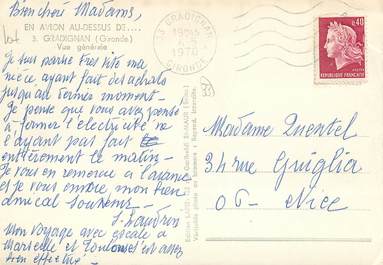 Bien chère Madame,
EN AVION AU-DESSUS DE....
3. GRADIGNAN (Gironde)
Vue générale
Je suis partie très vite ma
nièce ayant fait des achats
jusqu'au dernier moment -
Je pense que vous avez pensé
à fermer l'électricité ne
l'ayant pas fait
entièrement le matin -
Je vous en remercie à l'avance
et je vous envoie mon bien
amical souvenir -
J. Landrin
Mon voyage avec escale à
Marseille et Toulouse s'est assez
bien effectué -
33 GRADIGNAN
1970
GIRONDE
0,40
REPUBLIQUE FRANÇAISE
33
Madame Quentel
34 rue Guiglia
06 - Nice